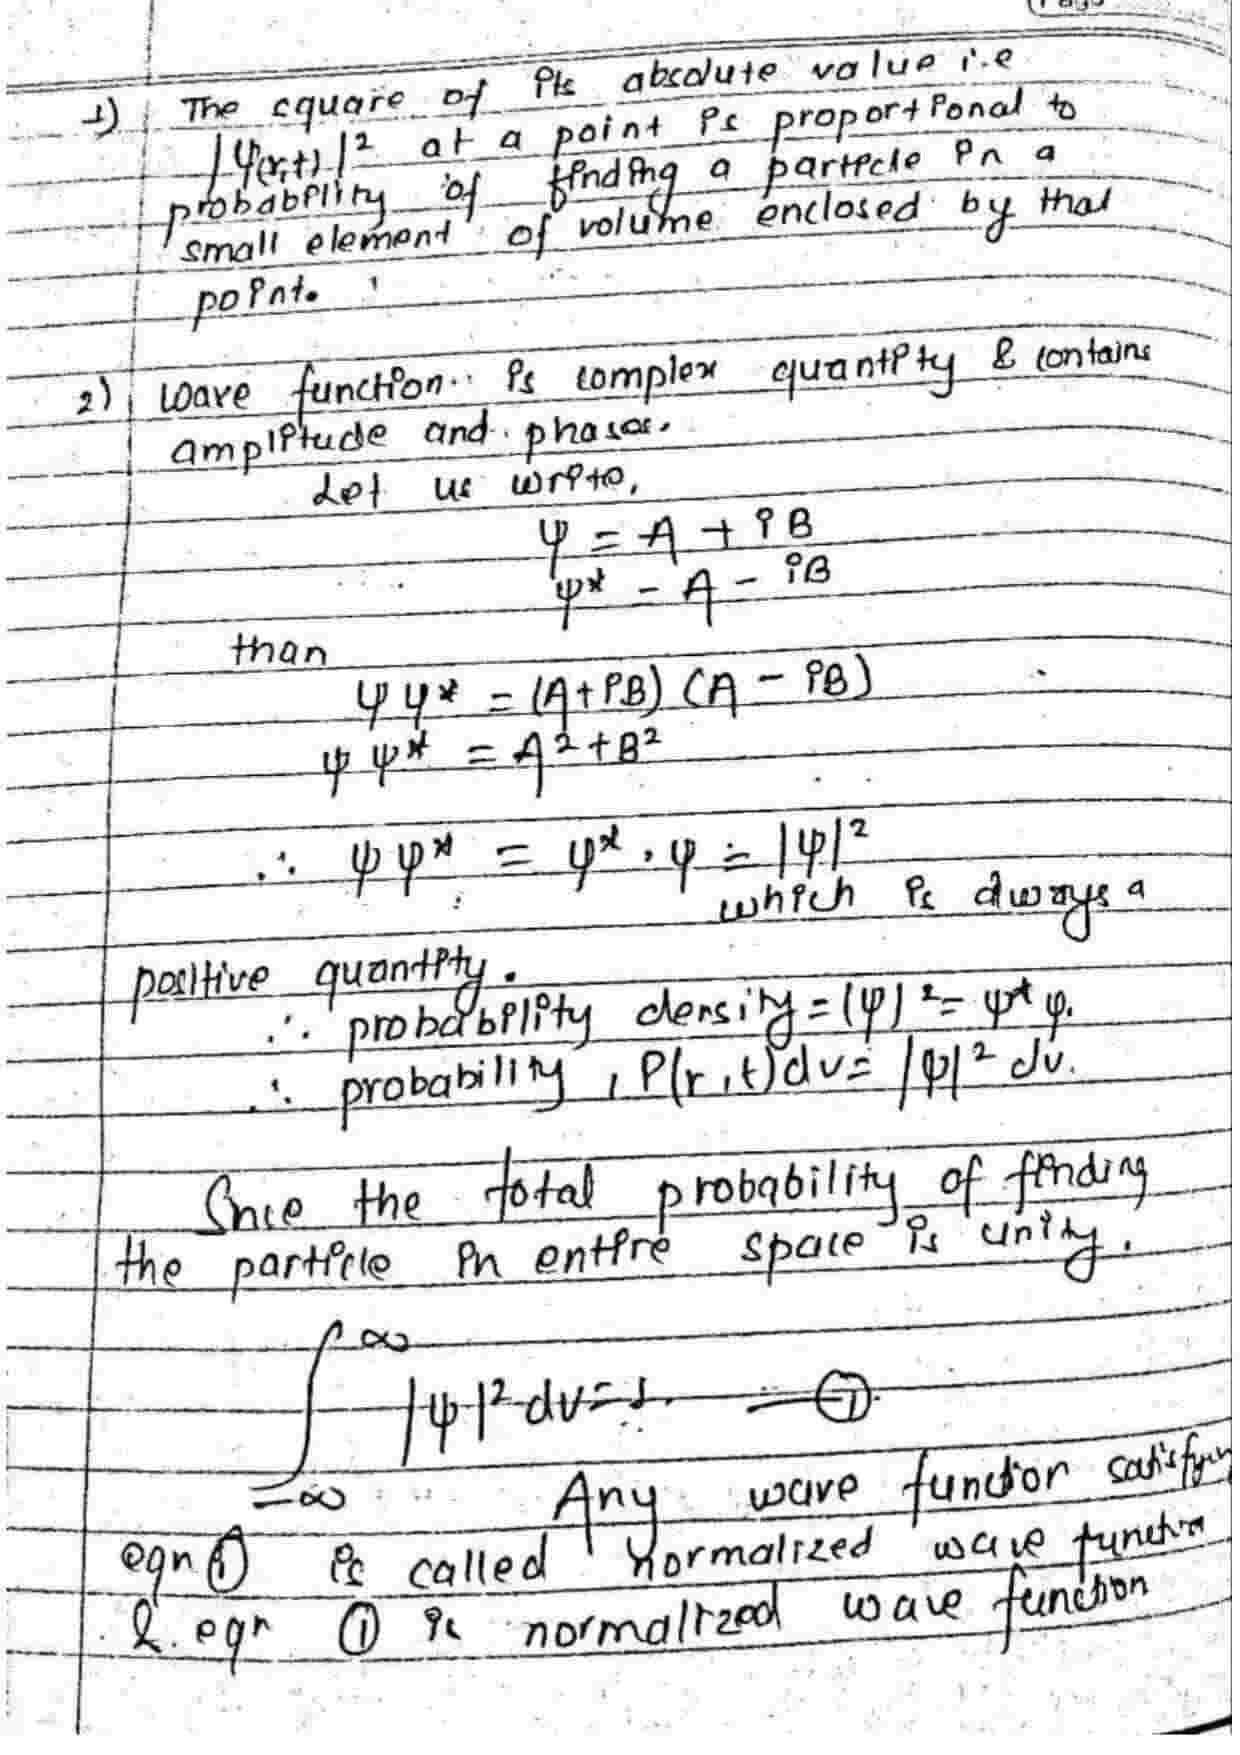 1) The square of its absolute value i.e
|ψ(r,t)|² at a point is proportional to
probability of finding a particle in a
small element of volume enclosed by that
point.
2) Wave function is complex quantity & contains
amplitude and phases.
Let us write,
ψ = A + iB
ψ* = A - iB
than
ψψ* = (A+iB) (A - iB)
ψψ* = A² + B²
∴ ψψ* = ψ*.ψ = |ψ|²
which is always a
positive quantity.
∴ probability density = |ψ|² = ψ*ψ.
∴ probability, P(r,t)dv = |ψ|² dv.
Since the total probability of finding
the particle in entire space is unity.
∫ ∞ -∞ |ψ|² dv = 1. — ①
Any wave function satisfying
eqn ① is called normalized wave function
& eqn ① is normalized wave function